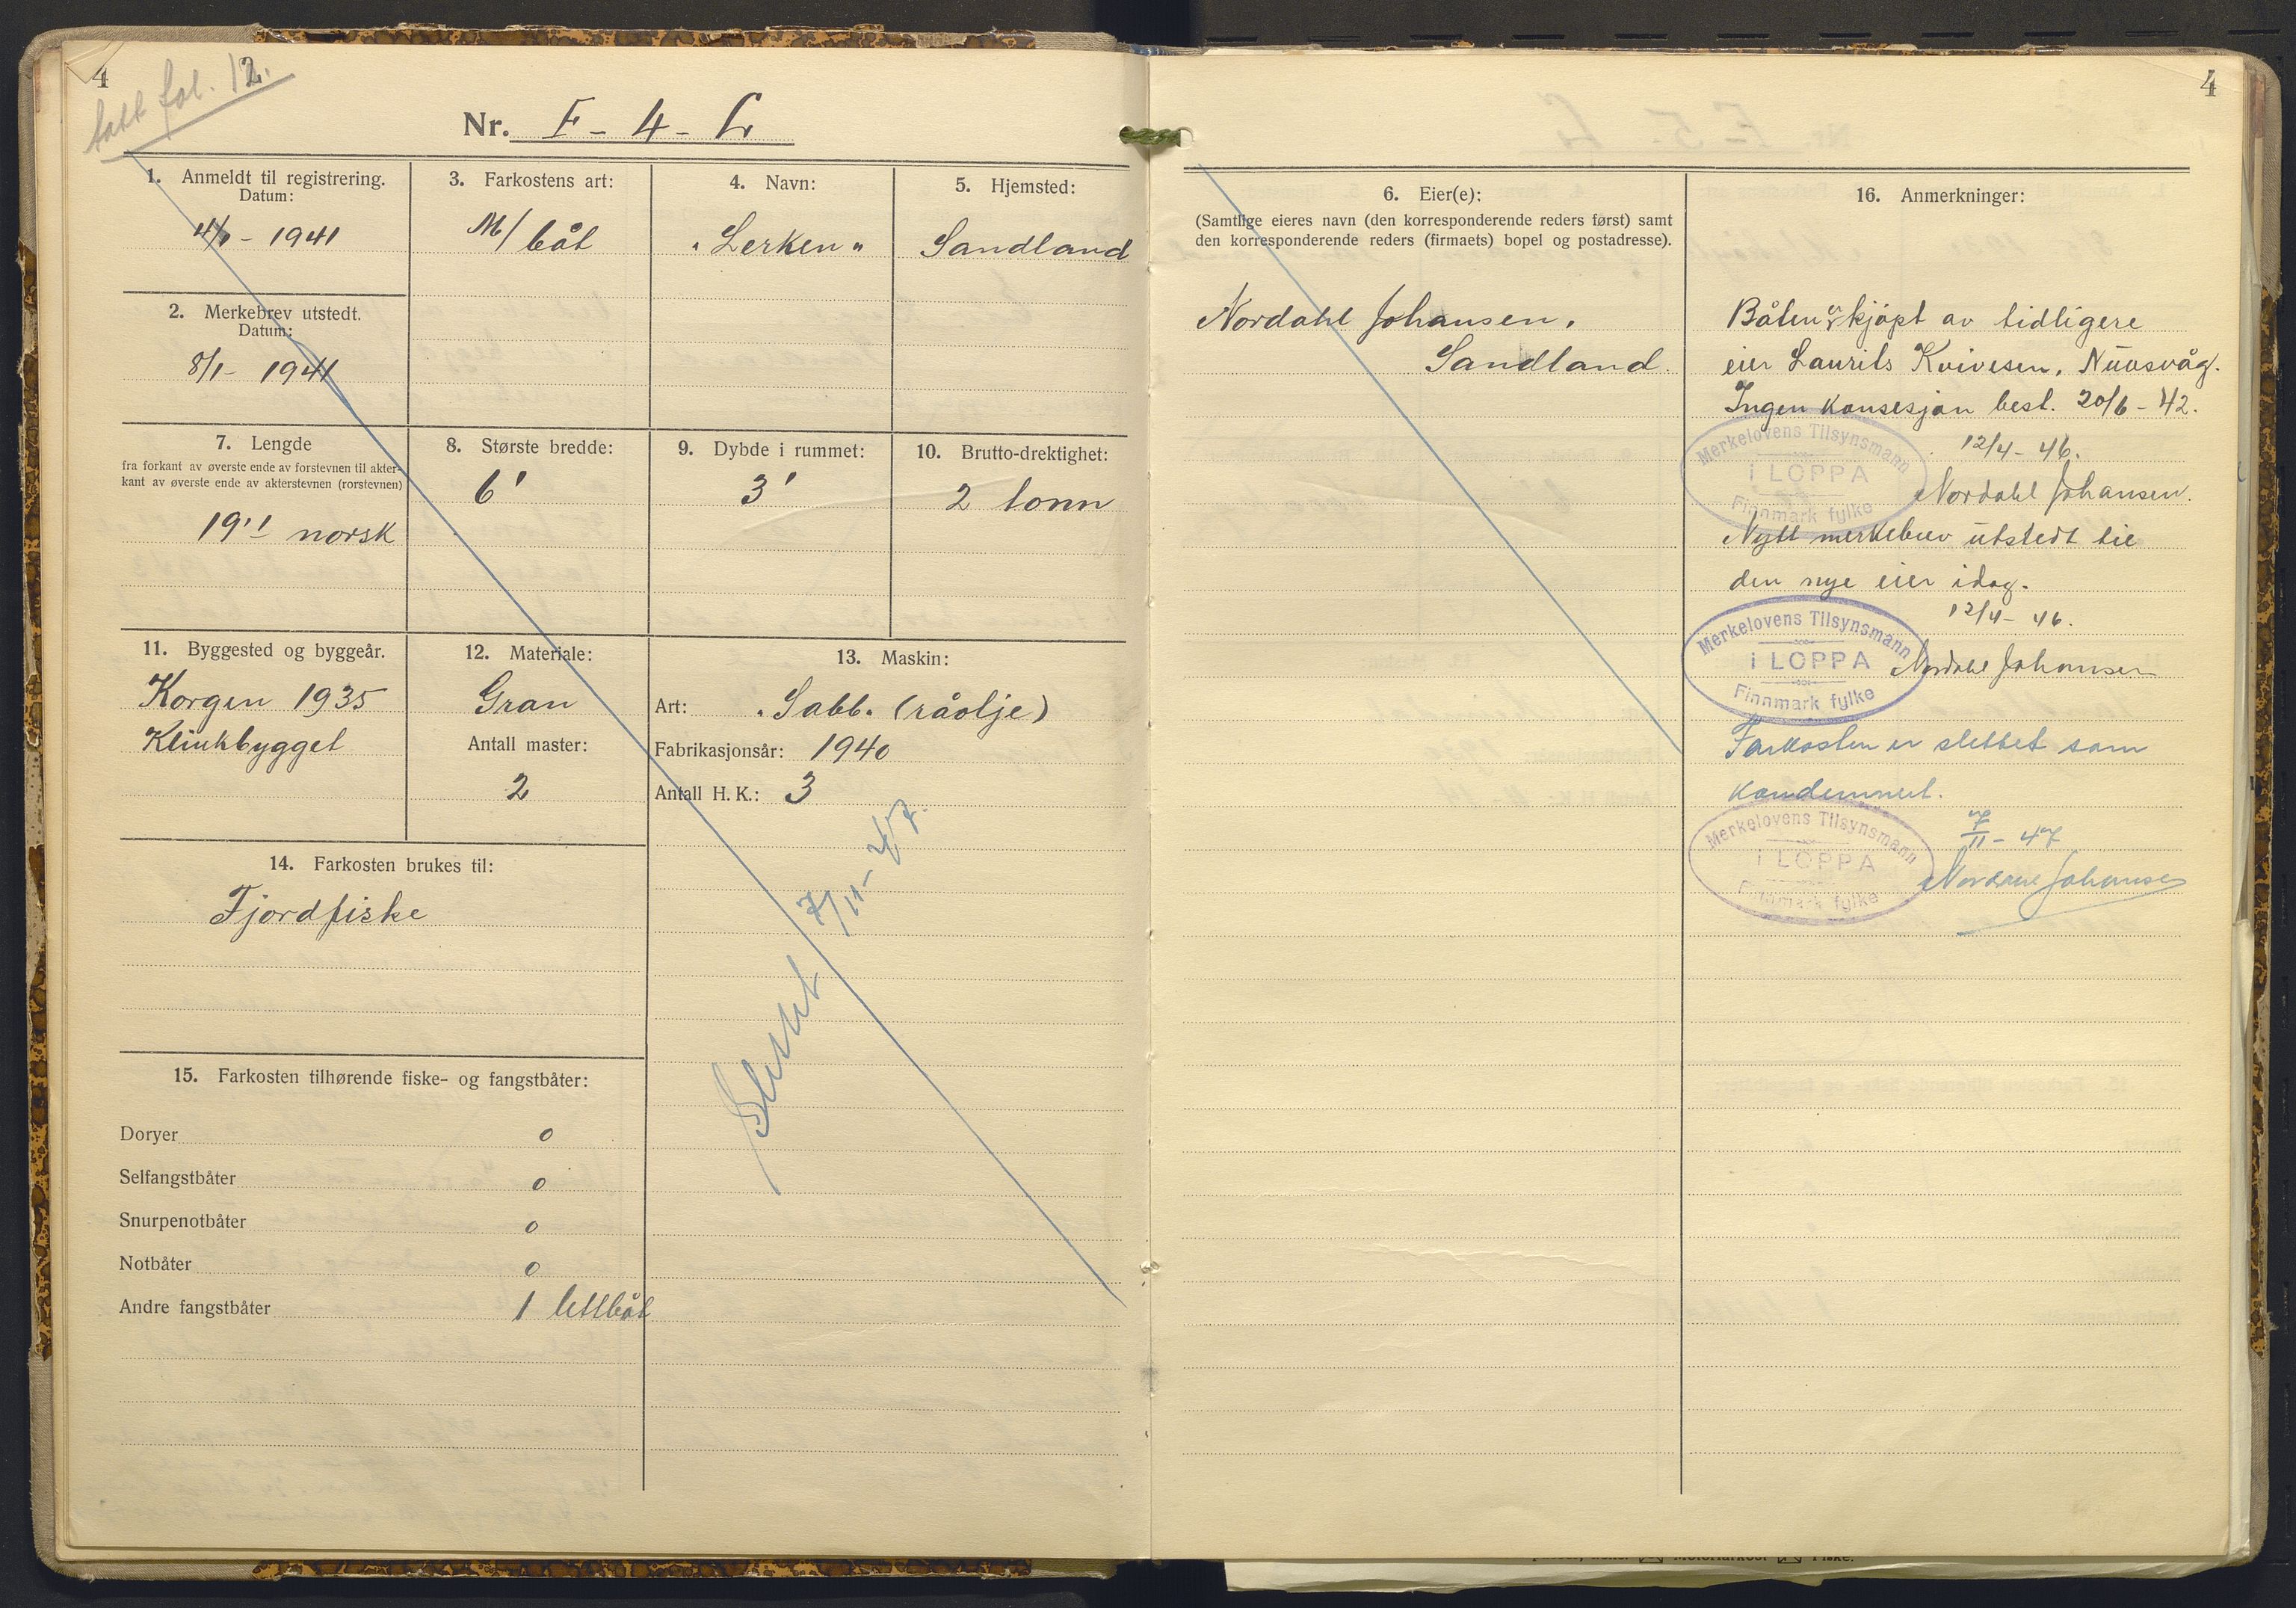 4
fol. 12.
Nr. F - 4 - L
1. Anmeldt til registrering.
Datum:
4/1 - 1941
2. Merkebrev utstedt.
Datum:
8/1 - 1941
3. Farkostens art:
M/ båt
4. Navn:
"Lerken"
5. Hjemsted:
Sandland
7. Lengde
fra forkant av øverste ende av forstevnen til akter-
kant av øverste ende av akterstevnen (rorstevnen)
19'1" norsk
8. Største bredde:
6'
9. Dybde i rummet:
3'
10. Brutto-drektighet:
2 tonn
11. Byggested og byggeår.
Korgen 1935
Klinkbygget
12. Materiale:
Gran
Antall master:
2
13. Maskin:
Art: "Sabb" (råolje)
Fabrikasjonsår: 1940
Antall H. K.: 3
Slettet 7/11 - 47.
14. Farkosten brukes til:
Fjordfiske
15. Farkosten tilhørende fiske- og fangstbåter:
Doryer 0
Selfangstbåter 0
Snurpenotbåter 0
Notbåter 0
Andre fangstbåter 1 lettbåt
4
6. Eier(e):
(Samtlige eieres navn (den korresponderende reders først) samt
den korresponderende reders (firmaets) bopel og postadresse).
Nordahl Johansen,
Sandland.
16. Anmerkninger:
Båten er kjøpt av tidligere
eier Laurits Kvivesen, Nuvsvåg.
Ingen konsesjon best. 20/6 - 42.
12/4 - 46.
Merkelovens Tilsynsmann
i LOPPA
Finnmark fylke
Nordahl Johansen.
Nytt merkebrev utstedt til
den nye eier idag.
12/4 - 46.
Merkelovens Tilsynsmann
i LOPPA
Finnmark fylke
Nordahl Johansen
Farkosten er slettet som
kondemnert.
7/11 - 47
Merkelovens Tilsynsmann
i LOPPA
Finnmark fylke
Nordahl Johansen